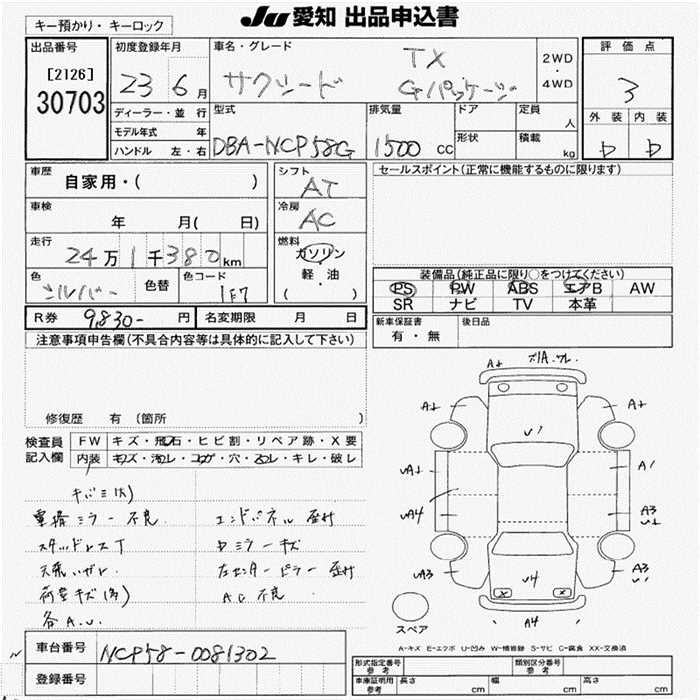 JU 愛知 出品申込書
キー預かり・キーロック
出品番号
[2126]
30703
初度登録年月
23 6月
車名・グレード
サクシード
TX
Gパッケージ
2WD
・
4WD
評価点
3
外装 内装
D D
ディーラー・並行
モデル年式 年
ハンドル 左・右
型式
DBA-NCP58G
排気量
1500 cc
ドア
形状
定員
人
積載
kg
車歴
自家用・( )
シフト
AT
セールスポイント(正常に機能するものに限ります)
車検
年 月( 日)
冷房
AC
走行
24万1千380km
燃料
ガソリン
軽・油
( )
色
シルバー
色替
色コード
1F7
装備品(純正品に限り○をつけてください)
PS PW ABS エアB AW
SR ナビ TV 本革
R券 9,830- 円 名変期限 月 日
新車保証書
有・無
後日品
注意事項申告欄(不具合内容等は具体的に記入して下さい)
修復歴 有(箇所 )
検査員
記入欄
FW キズ・飛石・ヒビ割・リペア跡・X要
内装 キズ・汚レ・コゲ・穴・スレ・キレ・破レ
キバミ(大)
電格ミラー不良
エンドパネル 歪付
スタッドレスT
Dミラーキズ
左センターピラー 歪付
荷室キズ(多)
A.C 不良
各A.U.
A+
A+
A+
U1
UA1
A1
UA4
A3
U1
UA3
A3
U1
U4
A4
スペア
A-キズ E-エクボ U-凹み W-補修跡 S-サビ C-腐食 XX-交換済
車台番号 NCP58-0081302
登録番号
形式指定番号
参考
類別区分番号
参考
車庫証明用
参考
長さ cm 幅 cm 高さ cm